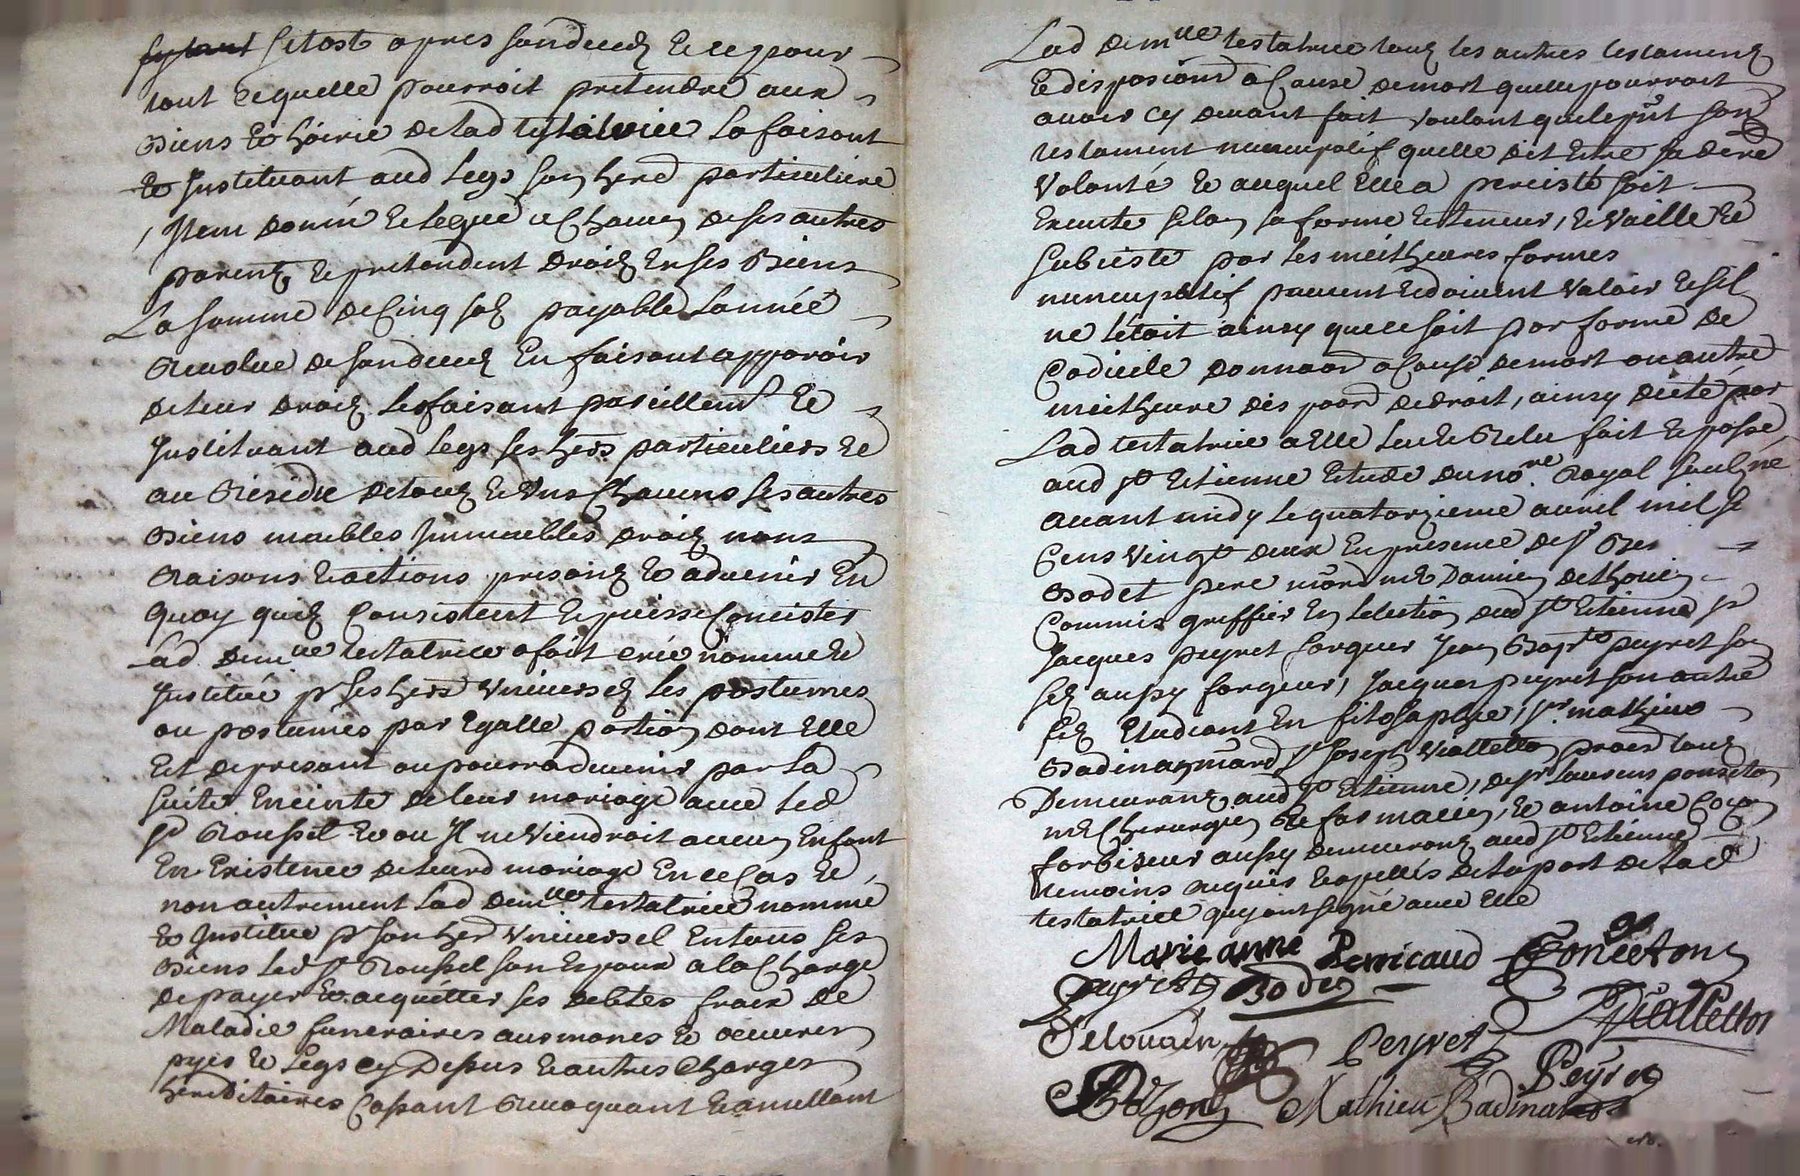 sitost apres son deced et ce pour
tout ce quelle pourroit pretendre aux
biens et hoirie de lad testatrice la faisant
et instituant aud legs son here particuliere
Item donne et legue a chacun de ses autres
parents et pretendent droits en ses biens
La somme de cinq sols payable l'année
revolue de son deced en faisant apparoir
de leur droits les faisant pareillemt et
instituant aud legs ses hers particuliers et
au residu de tous et uns chacuns ses autres
biens meubles immeubles droits noms
raisons et actions presents et advenir en
quoy quils consistent et puisse concister
Lad demlle testatrice a fait créé nommé et
institué pr ses hers universels les postumes
ou postumes par egalle portion dont elle
est de present ou pourra devenir par la
suite enceinte de leur mariage avec led
sr Roussel et ou Il ne viendroit aucun enfant
en existence de leurd mariage en ce cas et
non autrement Lad demlle testatrice nomme
et institue pr son her universel en tous ses
biens led sr Roussel son epoux a la charge
de payer et acquitter ses debtes fraix de
Maladie funeraires ausmones et oeuvres
pyes et legs cy dessus et autres charges
hereditaires cassant revoquant et annullant
Lad demlle testatrice tous les autres testaments
et disposions a cause de mort quelle pourroit
avoir cy devant fait voulant que le pnt son
testament nuncupatif quelle dit etre sa dere
volonté et auquel elle a percisté soit
execute selon sa forme et teneur, et vaille et
subciste par les meilheures formes
nuncupatif peuvent et doivent valoir et sil
ne letoit ainsy que ce soit par forme de
Codicile donnaon a cause de mort ou autre
meilheure dispoon de droit, ainsy dicté par
Lad testatrice a elle leu et releu fait et passé
aud st Etienne etude du nore Royal soulzne
avant midy le quatorzieme avril mil se
cens vingt deux en presence de sr
Bodet pere mard me Damien dethouin
Commis greffier en lelection dud st Etienne sr
Jacques peyret forgeur Jean Baptte peyret son
fils aussy forgeur, Jacques peyret son autre
fils Etudiant en filosophie, sr mathieu
Badinand mard sr Joseph vialleton tous
Demeurants aud st Etienne, de sr laurens ponceton
me chirurgien et farmacien, et antoine
forbisseur aussy demeurant aud st Etienne
temoins requis et apellés de la part de lad
testatrice quy ont signé avec elle
Marie anne Pernicaud Poncetton
peyret Bodet
Vialletton
Detouain Peyret
Peyret
Mathieu Badinand